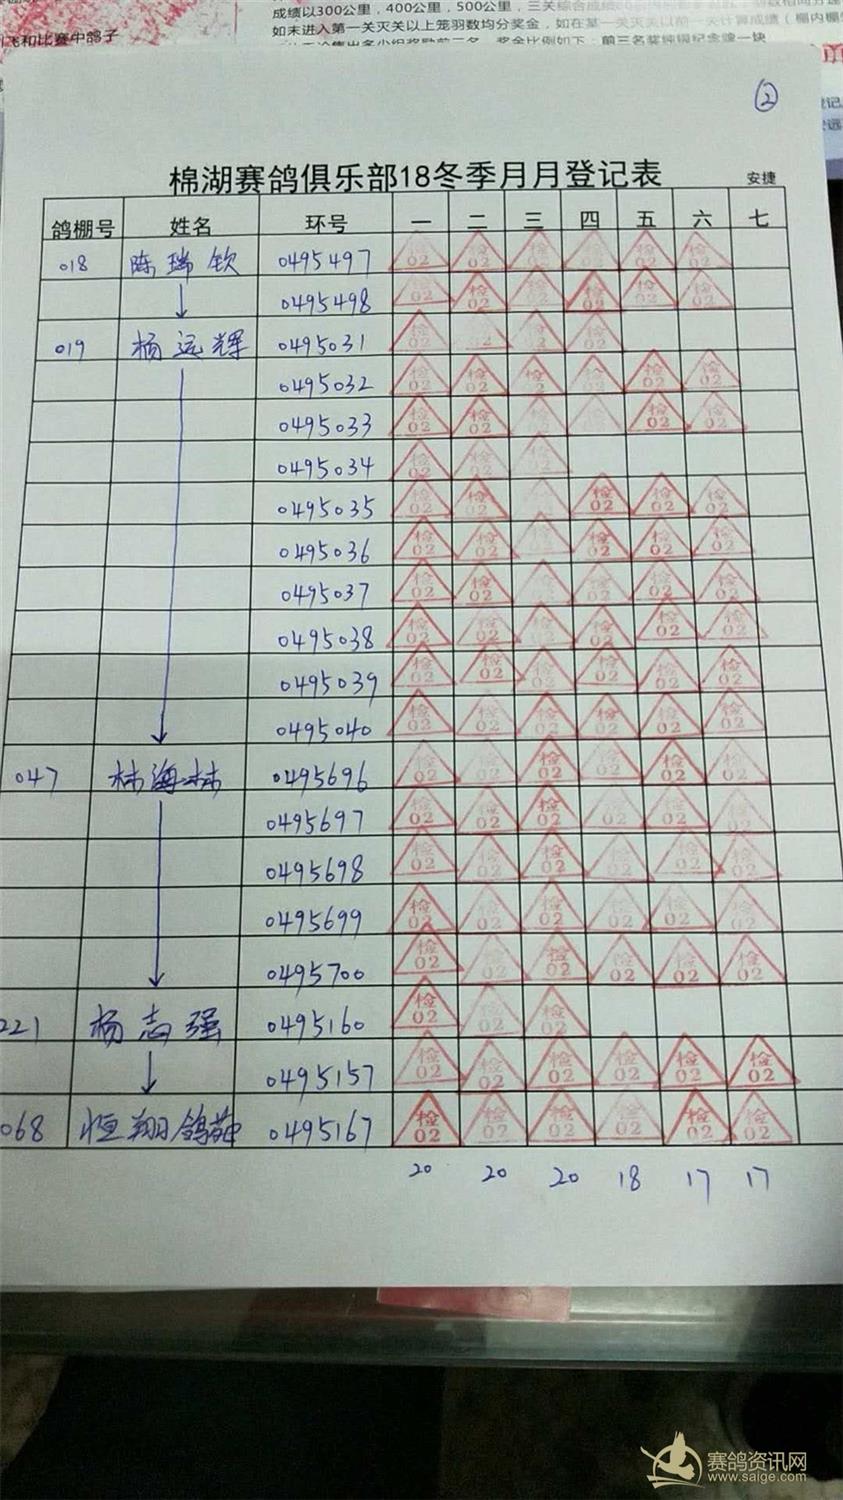 飞和比赛中鸽子
成绩以300公里，400公里，500公里，三关综合成绩
如未进入第一关灭关以上笼羽数均分奖金，如在某一关灭关以前一关计算成绩（棚内棚
奖金比例如下：前三名奖纯银纪念牌一块
②
棉湖赛鸽俱乐部18冬季月月登记表 安捷
鸽棚号 姓名 环号 一 二 三 四 五 六 七
018 陈瑞钦 0495497 检02 检02 检02 检02 检02 检02
↓ 0495498 检02 检02 检02 检02 检02 检02
019 杨远辉 0495031 检02 检02 检02 检02
0495032 检02 检02 检02 检02 检02 检02
0495033 检02 检02 检02 检02 检02 检02
0495034 检02 检02 检02
0495035 检02 检02 检02 检02 检02 检02
0495036 检02 检02 检02 检02 检02 检02
0495037 检02 检02 检02 检02 检02 检02
0495038 检02 检02 检02 检02 检02 检02
0495039 检02 检02 检02 检02 检02 检02
0495040 检02 检02 检02 检02 检02 检02
047 林海林 0495696 检02 检02 检02 检02 检02 检02
0495697 检02 检02 检02 检02 检02 检02
0495698 检02 检02 检02 检02 检02 检02
0495699 检02 检02 检02 检02 检02 检02
0495700 检02 检02 检02 检02 检02 检02
221 杨志强 0495160 检02 检02 检02
↓ 0495157 检02 检02 检02 检02 检02 检02
068 恒翔鸽 0495167 检02 检02 检02 检02 检02 检02
20 20 20 18 17 17
赛鸽资讯网
www.saige.com